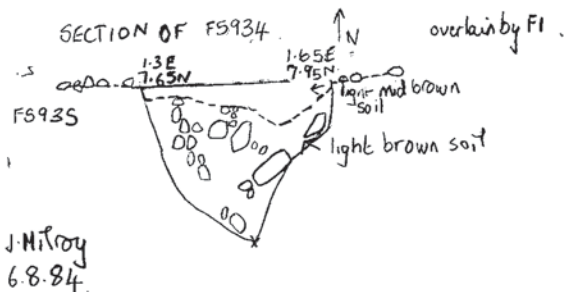 SECTION OF F5934
N
overlain by F1
1.3E
7.65N
1.65E
7.95N
light-mid brown
soil
F5935
light brown soil
J. Milroy
6.8.84